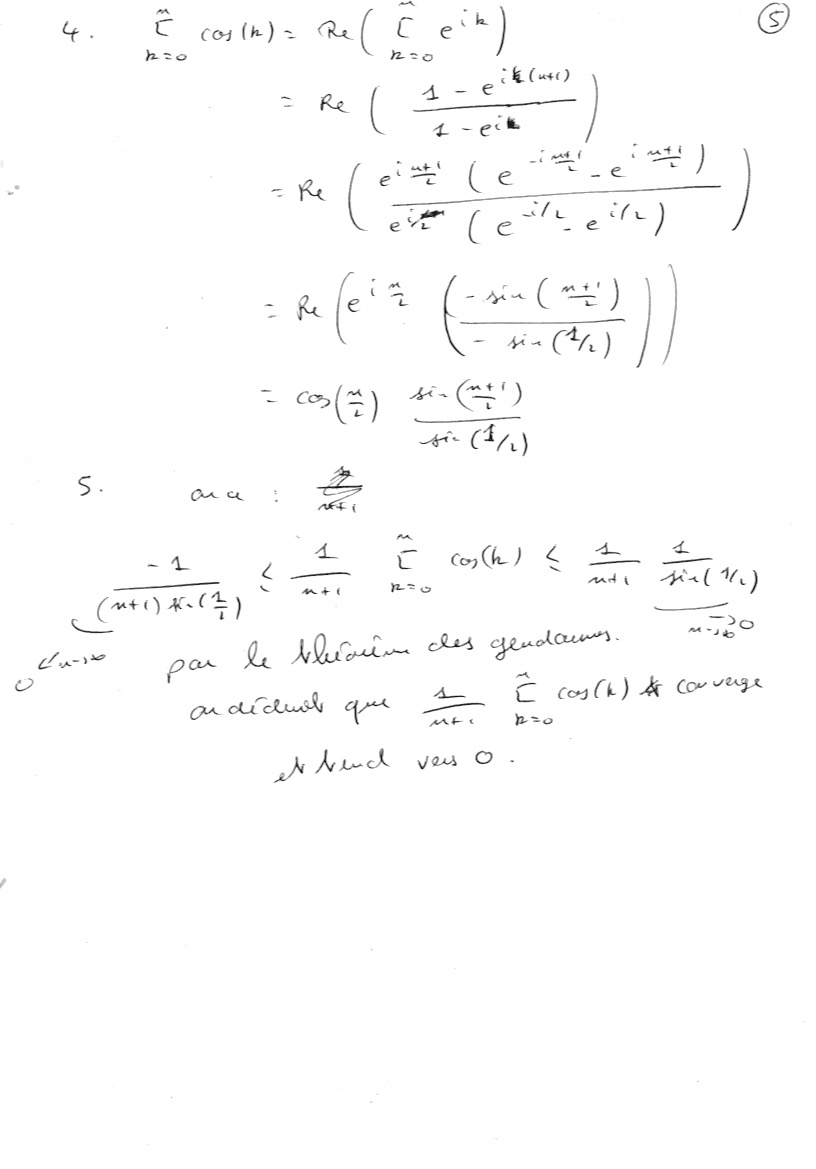 ⑤
4. $\sum_{k=0}^{n} \cos(k) = \mathrm{Re}\left(\sum_{k=0}^{n} e^{ik}\right)$
$= \mathrm{Re}\left(\frac{1 - e^{i(n+1)}}{1 - e^{i}}\right)$
$= \mathrm{Re}\left(\frac{e^{i\frac{n+1}{2}}\left(e^{-i\frac{n+1}{2}} - e^{i\frac{n+1}{2}}\right)}{e^{i/2}\left(e^{-i/2} - e^{i/2}\right)}\right)$
$= \mathrm{Re}\left(e^{i\frac{n}{2}}\left(\frac{-\sin\left(\frac{n+1}{2}\right)}{-\sin(1/2)}\right)\right)$
$= \cos\left(\frac{n}{2}\right) \frac{\sin\left(\frac{n+1}{2}\right)}{\sin(1/2)}$
5. on a :
$\frac{-1}{(n+1)\sin(\frac{1}{2})} \leq \frac{1}{n+1} \sum_{k=0}^{n} \cos(k) \leq \frac{1}{n+1} \frac{1}{\sin(1/2)}$
$0 \underset{n\to\infty}{\leftarrow}$ $\underset{n\to\infty}{\to} 0$
par le théorème des gendarmes.
on déduit que $\frac{1}{n+1} \sum_{k=0}^{n} \cos(k)$ converge
et tend vers 0.